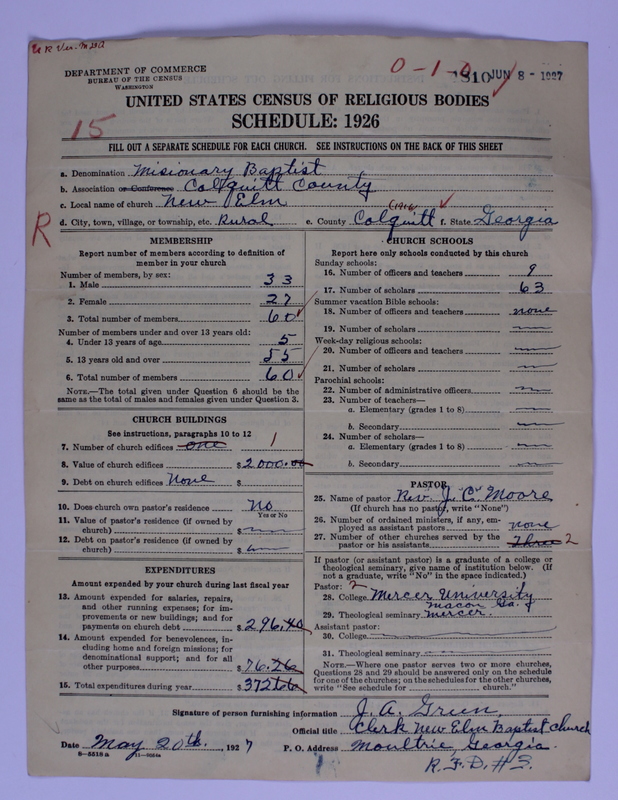 DEPARTMENT OF COMMERCE
BUREAU OF THE CENSUS
WASHINGTON
0-1-0
1310 JUN 8 - 1927
UNITED STATES CENSUS OF RELIGIOUS BODIES
SCHEDULE: 1926
15
FILL OUT A SEPARATE SCHEDULE FOR EACH CHURCH. SEE INSTRUCTIONS ON THE BACK OF THIS SHEET
a. Denomination Misionary Baptist
b. Association or Conference Colquitt County
c. Local name of church New Elm
R
d. City, town, village, or township, etc. Rural e. County Colquitt f. State Georgia
MEMBERSHIP
Report number of members according to definition of member in your church
Number of members, by sex:
1. Male 33
2. Female 27
3. Total number of members 60
Number of members under and over 13 years old:
4. Under 13 years of age 5
5. 13 years old and over 55
6. Total number of members 60
NOTE.—The total given under Question 6 should be the
same as the total of males and females given under Question 3.
CHURCH BUILDINGS
See instructions, paragraphs 10 to 12
7. Number of church edifices one 1
8. Value of church edifices $2000.00
9. Debt on church edifices None $
10. Does church own pastor's residence No
Yes or No
11. Value of pastor's residence (if owned by
church) $
12. Debt on pastor's residence (if owned by
church) $
EXPENDITURES
Amount expended by your church during last fiscal year
13. Amount expended for salaries, repairs,
and other running expenses; for im-
provements or new buildings; and for
payments on church debt $296.40
14. Amount expended for benevolences, in-
cluding home and foreign missions; for
denominational support; and for all
other purposes $76.26
15. Total expenditures during year $372.66
CHURCH SCHOOLS
Report here only schools conducted by this church
Sunday schools:
16. Number of officers and teachers 9
17. Number of scholars 63
Summer vacation Bible schools:
18. Number of officers and teachers none
19. Number of scholars
Week-day religious schools:
20. Number of officers and teachers
21. Number of scholars
Parochial schools:
22. Number of administrative officers
23. Number of teachers—
a. Elementary (grades 1 to 8)
b. Secondary
24. Number of scholars—
a. Elementary (grades 1 to 8)
b. Secondary
PASTOR
25. Name of pastor Rev. J. "C" Moore
(If church has no pastor, write "None")
26. Number of ordained ministers, if any, em-
ployed as assistant pastors none
27. Number of other churches served by the
pastor or his assistants Three 2
If pastor (or assistant pastor) is a graduate of a college or
theological seminary, give name of institution below. (If
not a graduate, write "No" in the space indicated.)
Pastor: ?
28. College Mercer University
Macon Ga. &
29. Theological seminary Mercer.
Assistant pastor:
30. College
31. Theological seminary
NOTE.—Where one pastor serves two or more churches,
Questions 28 and 29 should be answered only on the schedule
for one of the churches; on the schedules for the other churches,
write "See schedule for church."
Signature of person furnishing information J. A. Green
Official title Clerk New Elm Baptist Church
Date May 20th, 1927 P. O. Address Moultrie, Georgia.
8-5518a 11-9604a
R.F.D. #3.